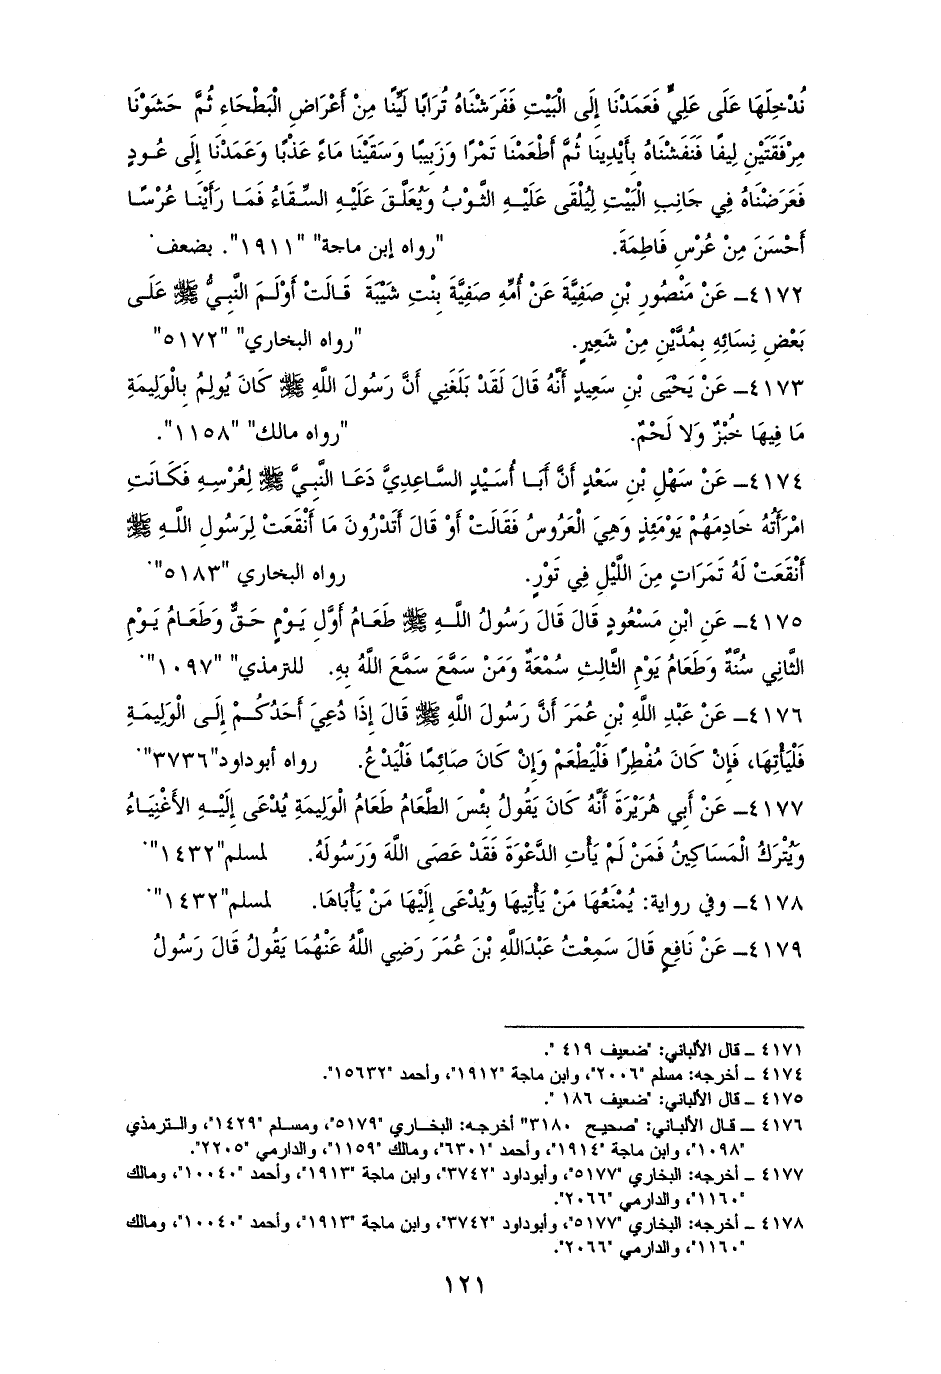 نُدْخِلَهَا عَلَى عَلِيٍّ فَعَمَدْنَا إِلَى الْبَيْتِ فَفَرَشْنَاهُ تُرَابًا لَيِّنًا مِنْ أَعْرَاضِ الْبَطْحَاءِ ثُمَّ حَشَوْنَا
مِرْفَقَتَيْنِ لِيفًا فَنَفَشْنَاهُ بِأَيْدِينَا ثُمَّ أَطْعَمْنَا تَمْرًا وَزَبِيبًا وَسَقَيْنَا مَاءً عَذْبًا وَعَمَدْنَا إِلَى عُودٍ
فَعَرَضْنَاهُ فِي جَانِبِ الْبَيْتِ لِيُلْقَى عَلَيْهِ الثَّوْبُ وَيُعَلَّقَ عَلَيْهِ السِّقَاءُ فَمَا رَأَيْنَا عُرْسًا
أَحْسَنَ مِنْ عُرْسِ فَاطِمَةَ. "رواه إبن ماجة" "١٩١١". بضعف.
٤١٧٢ـ عَنْ مَنْصُورِ بْنِ صَفِيَّةَ عَنْ أُمِّهِ صَفِيَّةَ بِنْتِ شَيْبَةَ قَالَتْ أَوْلَمَ النَّبِيُّ ﷺ عَلَى
بَعْضِ نِسَائِهِ بِمُدَّيْنِ مِنْ شَعِيرٍ. "رواه البخاري" "٥١٧٢"
٤١٧٣ـ عَنْ يَحْيَى بْنِ سَعِيدٍ أَنَّهُ قَالَ لَقَدْ بَلَغَنِي أَنَّ رَسُولَ اللَّهِ ﷺ كَانَ يُولِمُ بِالْوَلِيمَةِ
مَا فِيهَا خُبْزٌ وَلَا لَحْمٌ. "رواه مالك" "١١٥٨".
٤١٧٤ـ عَنْ سَهْلِ بْنِ سَعْدٍ أَنَّ أَبَا أُسَيْدٍ السَّاعِدِيَّ دَعَا النَّبِيَّ ﷺ لِعُرْسِهِ فَكَانَتِ
امْرَأَتُهُ خَادِمَهُمْ يَوْمَئِذٍ وَهِيَ الْعَرُوسُ فَقَالَتْ أَوْ قَالَ أَتَدْرُونَ مَا أَنْقَعَتْ لِرَسُولِ اللَّهِ ﷺ
أَنْقَعَتْ لَهُ تَمَرَاتٍ مِنَ اللَّيْلِ فِي تَوْرٍ. رواه البخاري "٥١٨٣".
٤١٧٥ـ عَنِ ابْنِ مَسْعُودٍ قَالَ قَالَ رَسُولُ اللَّهِ ﷺ طَعَامُ أَوَّلِ يَوْمٍ حَقٌّ وَطَعَامُ يَوْمِ
الثَّانِي سُنَّةٌ وَطَعَامُ يَوْمِ الثَّالِثِ سُمْعَةٌ وَمَنْ سَمَّعَ سَمَّعَ اللَّهُ بِهِ. للترمذي" "١٠٩٧".
٤١٧٦ـ عَنْ عَبْدِ اللَّهِ بْنِ عُمَرَ أَنَّ رَسُولَ اللَّهِ ﷺ قَالَ إِذَا دُعِيَ أَحَدُكُمْ إِلَى الْوَلِيمَةِ
فَلْيَأْتِهَا، فَإِنْ كَانَ مُفْطِرًا فَلْيَطْعَمْ وَإِنْ كَانَ صَائِمًا فَلْيَدْعُ. رواه أبوداود"٣٧٣٦".
٤١٧٧ـ عَنْ أَبِي هُرَيْرَةَ أَنَّهُ كَانَ يَقُولُ بِئْسَ الطَّعَامُ طَعَامُ الْوَلِيمَةِ يُدْعَى إِلَيْهِ الأَغْنِيَاءُ
وَيُتْرَكُ الْمَسَاكِينُ فَمَنْ لَمْ يَأْتِ الدَّعْوَةَ فَقَدْ عَصَى اللَّهَ وَرَسُولَهُ. لمسلم"١٤٣٢".
٤١٧٨ـ وفي رواية: يُمْنَعُهَا مَنْ يَأْتِيهَا وَيُدْعَى إِلَيْهَا مَنْ يَأْبَاهَا. لمسلم"١٤٣٢".
٤١٧٩ـ عَنْ نَافِعٍ قَالَ سَمِعْتُ عَبْدَاللَّهِ بْنَ عُمَرَ رَضِيَ اللَّهُ عَنْهُمَا يَقُولُ قَالَ رَسُولُ
٤١٧١ ـ قال الألباني: "ضعيف ٤١٩".
٤١٧٤ ـ أخرجه: مسلم "٢٠٠٦"، وابن ماجة "١٩١٢"، وأحمد "١٥٦٣٢".
٤١٧٥ ـ قال الألباني: "ضعيف ١٨٦".
٤١٧٦ ـ قال الألباني: "صحيح ٣١٨٠" أخرجه: البخاري "٥١٧٩"، ومسلم "١٤٢٩"، والترمذي
"١٠٩٨"، وابن ماجة "١٩١٤"، وأحمد "٦٣٠١"، ومالك "١١٥٩"، والدارمي "٢٢٠٥".
٤١٧٧ ـ أخرجه: البخاري "٥١٧٧"، وأبوداود "٣٧٤٢"، وابن ماجة "١٩١٣"، وأحمد "١٠٠٤٠"، ومالك
"١١٦٠"، والدارمي "٢٠٦٦".
٤١٧٨ ـ أخرجه: البخاري "٥١٧٧"، وأبوداود "٣٧٤٢"، وابن ماجة "١٩١٣"، وأحمد "١٠٠٤٠"، ومالك
"١١٦٠"، والدارمي "٢٠٦٦".
١٢١